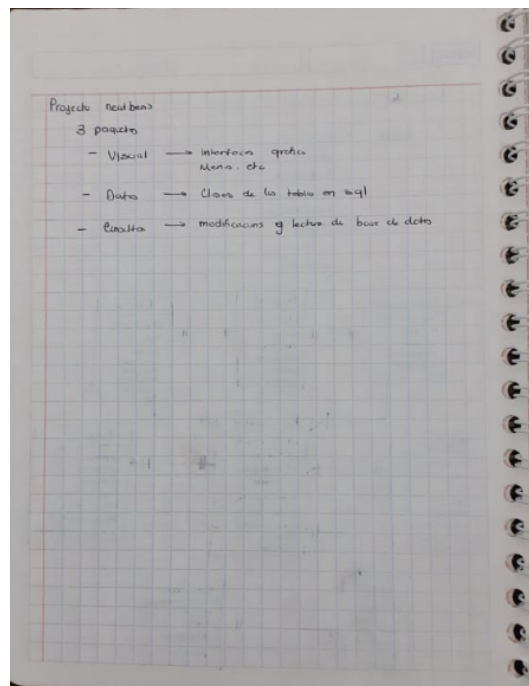 Proyecto neatbeans
3 paquetes
- Visual → Interfaces grafica
Menus. etc
- Datos → Clases de las tablas en sql
- Consultas → modificacions y lectura de base de datos